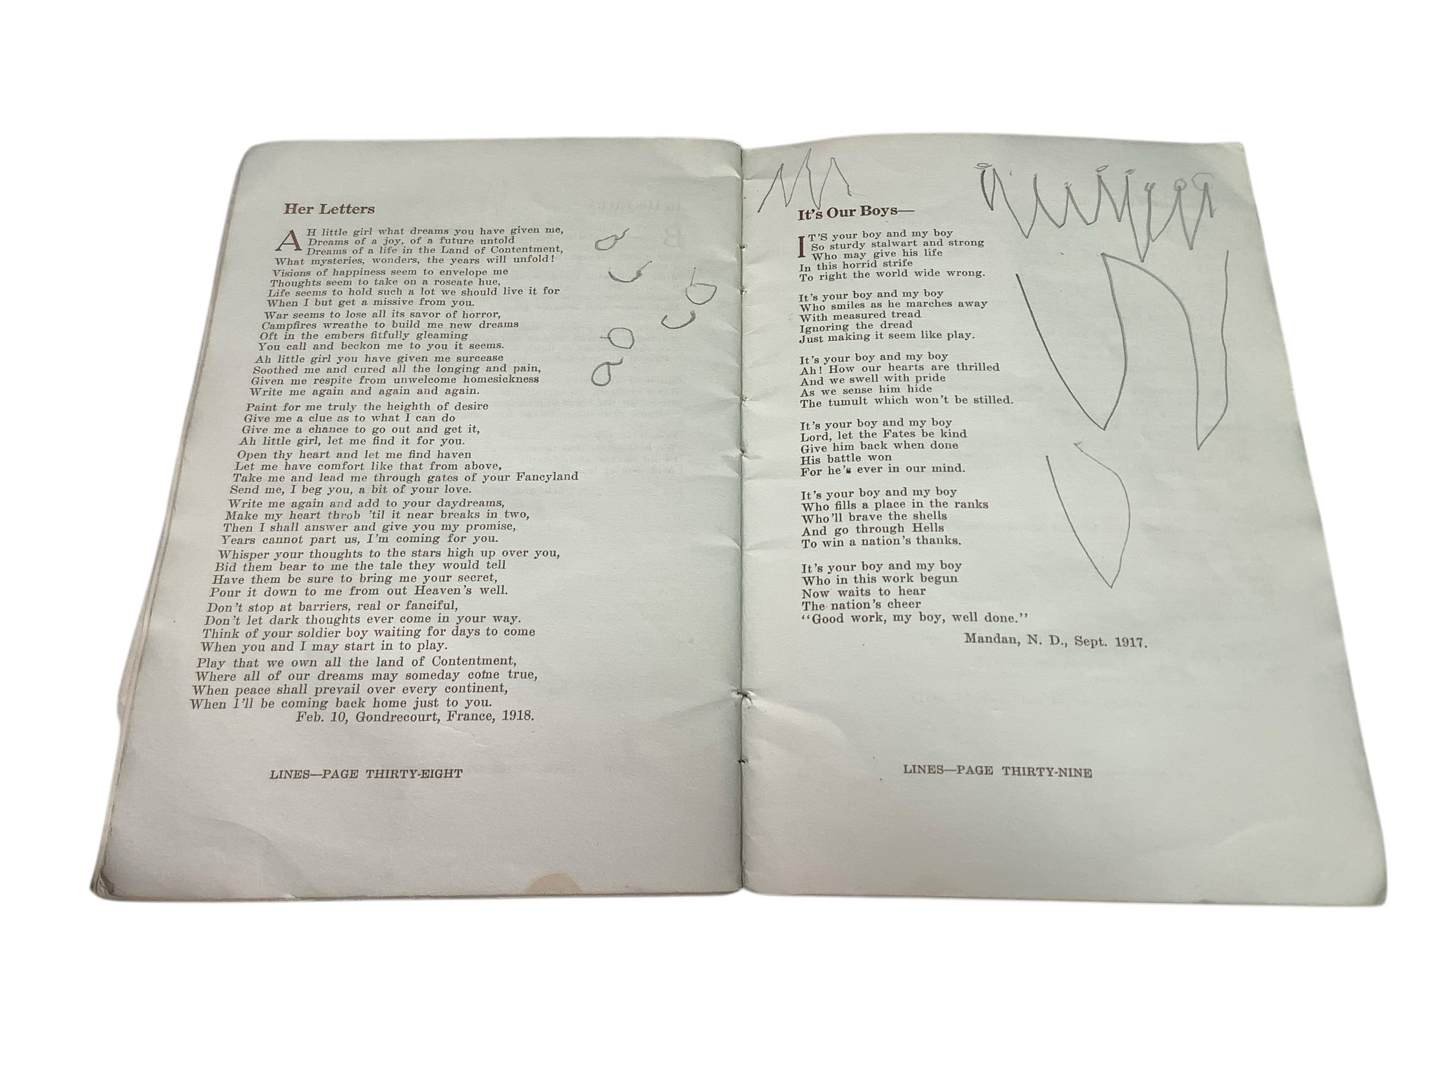 Her Letters
AH little girl what dreams you have given me,
Dreams of a joy, of a future untold
Dreams of a life in the Land of Contentment,
What mysteries, wonders, the years will unfold!
Visions of happiness seem to envelope me
Thoughts seem to take on a roseate hue,
Life seems to hold such a lot we should live it for
When I but get a missive from you.
War seems to lose all its savor of horror,
Campfires wreathe to build me new dreams
Oft in the embers fitfully gleaming
You call and beckon me to you it seems.
Ah little girl you have given me surcease
Soothed me and cured all the longing and pain,
Given me respite from unwelcome homesickness
Write me again and again and again.
Paint for me truly the heighth of desire
Give me a clue as to what I can do
Give me a chance to go out and get it,
Ah little girl, let me find it for you.
Open thy heart and let me find haven
Let me have comfort like that from above,
Take me and lead me through gates of your Fancyland
Send me, I beg you, a bit of your love.
Write me again and add to your daydreams,
Make my heart throb 'til it near breaks in two,
Then I shall answer and give you my promise,
Years cannot part us, I'm coming for you.
Whisper your thoughts to the stars high up over you,
Bid them bear to me the tale they would tell
Have them be sure to bring me your secret,
Pour it down to me from out Heaven's well.
Don't stop at barriers, real or fanciful,
Don't let dark thoughts ever come in your way.
Think of your soldier boy waiting for days to come
When you and I may start in to play.
Play that we own all the land of Contentment,
Where all of our dreams may someday come true,
When peace shall prevail over every continent,
When I'll be coming back home just to you.
Feb. 10, Gondrecourt, France, 1918.
LINES—PAGE THIRTY-EIGHT
It's Our Boys—
IT'S your boy and my boy
So sturdy stalwart and strong
Who may give his life
In this horrid strife
To right the world wide wrong.
It's your boy and my boy
Who smiles as he marches away
With measured tread
Ignoring the dread
Just making it seem like play.
It's your boy and my boy
Ah! How our hearts are thrilled
And we swell with pride
As we sense him hide
The tumult which won't be stilled.
It's your boy and my boy
Lord, let the Fates be kind
Give him back when done
His battle won
For he's ever in our mind.
It's your boy and my boy
Who fills a place in the ranks
Who'll brave the shells
And go through Hells
To win a nation's thanks.
It's your boy and my boy
Who in this work begun
Now waits to hear
The nation's cheer
"Good work, my boy, well done."
Mandan, N. D., Sept. 1917.
LINES—PAGE THIRTY-NINE